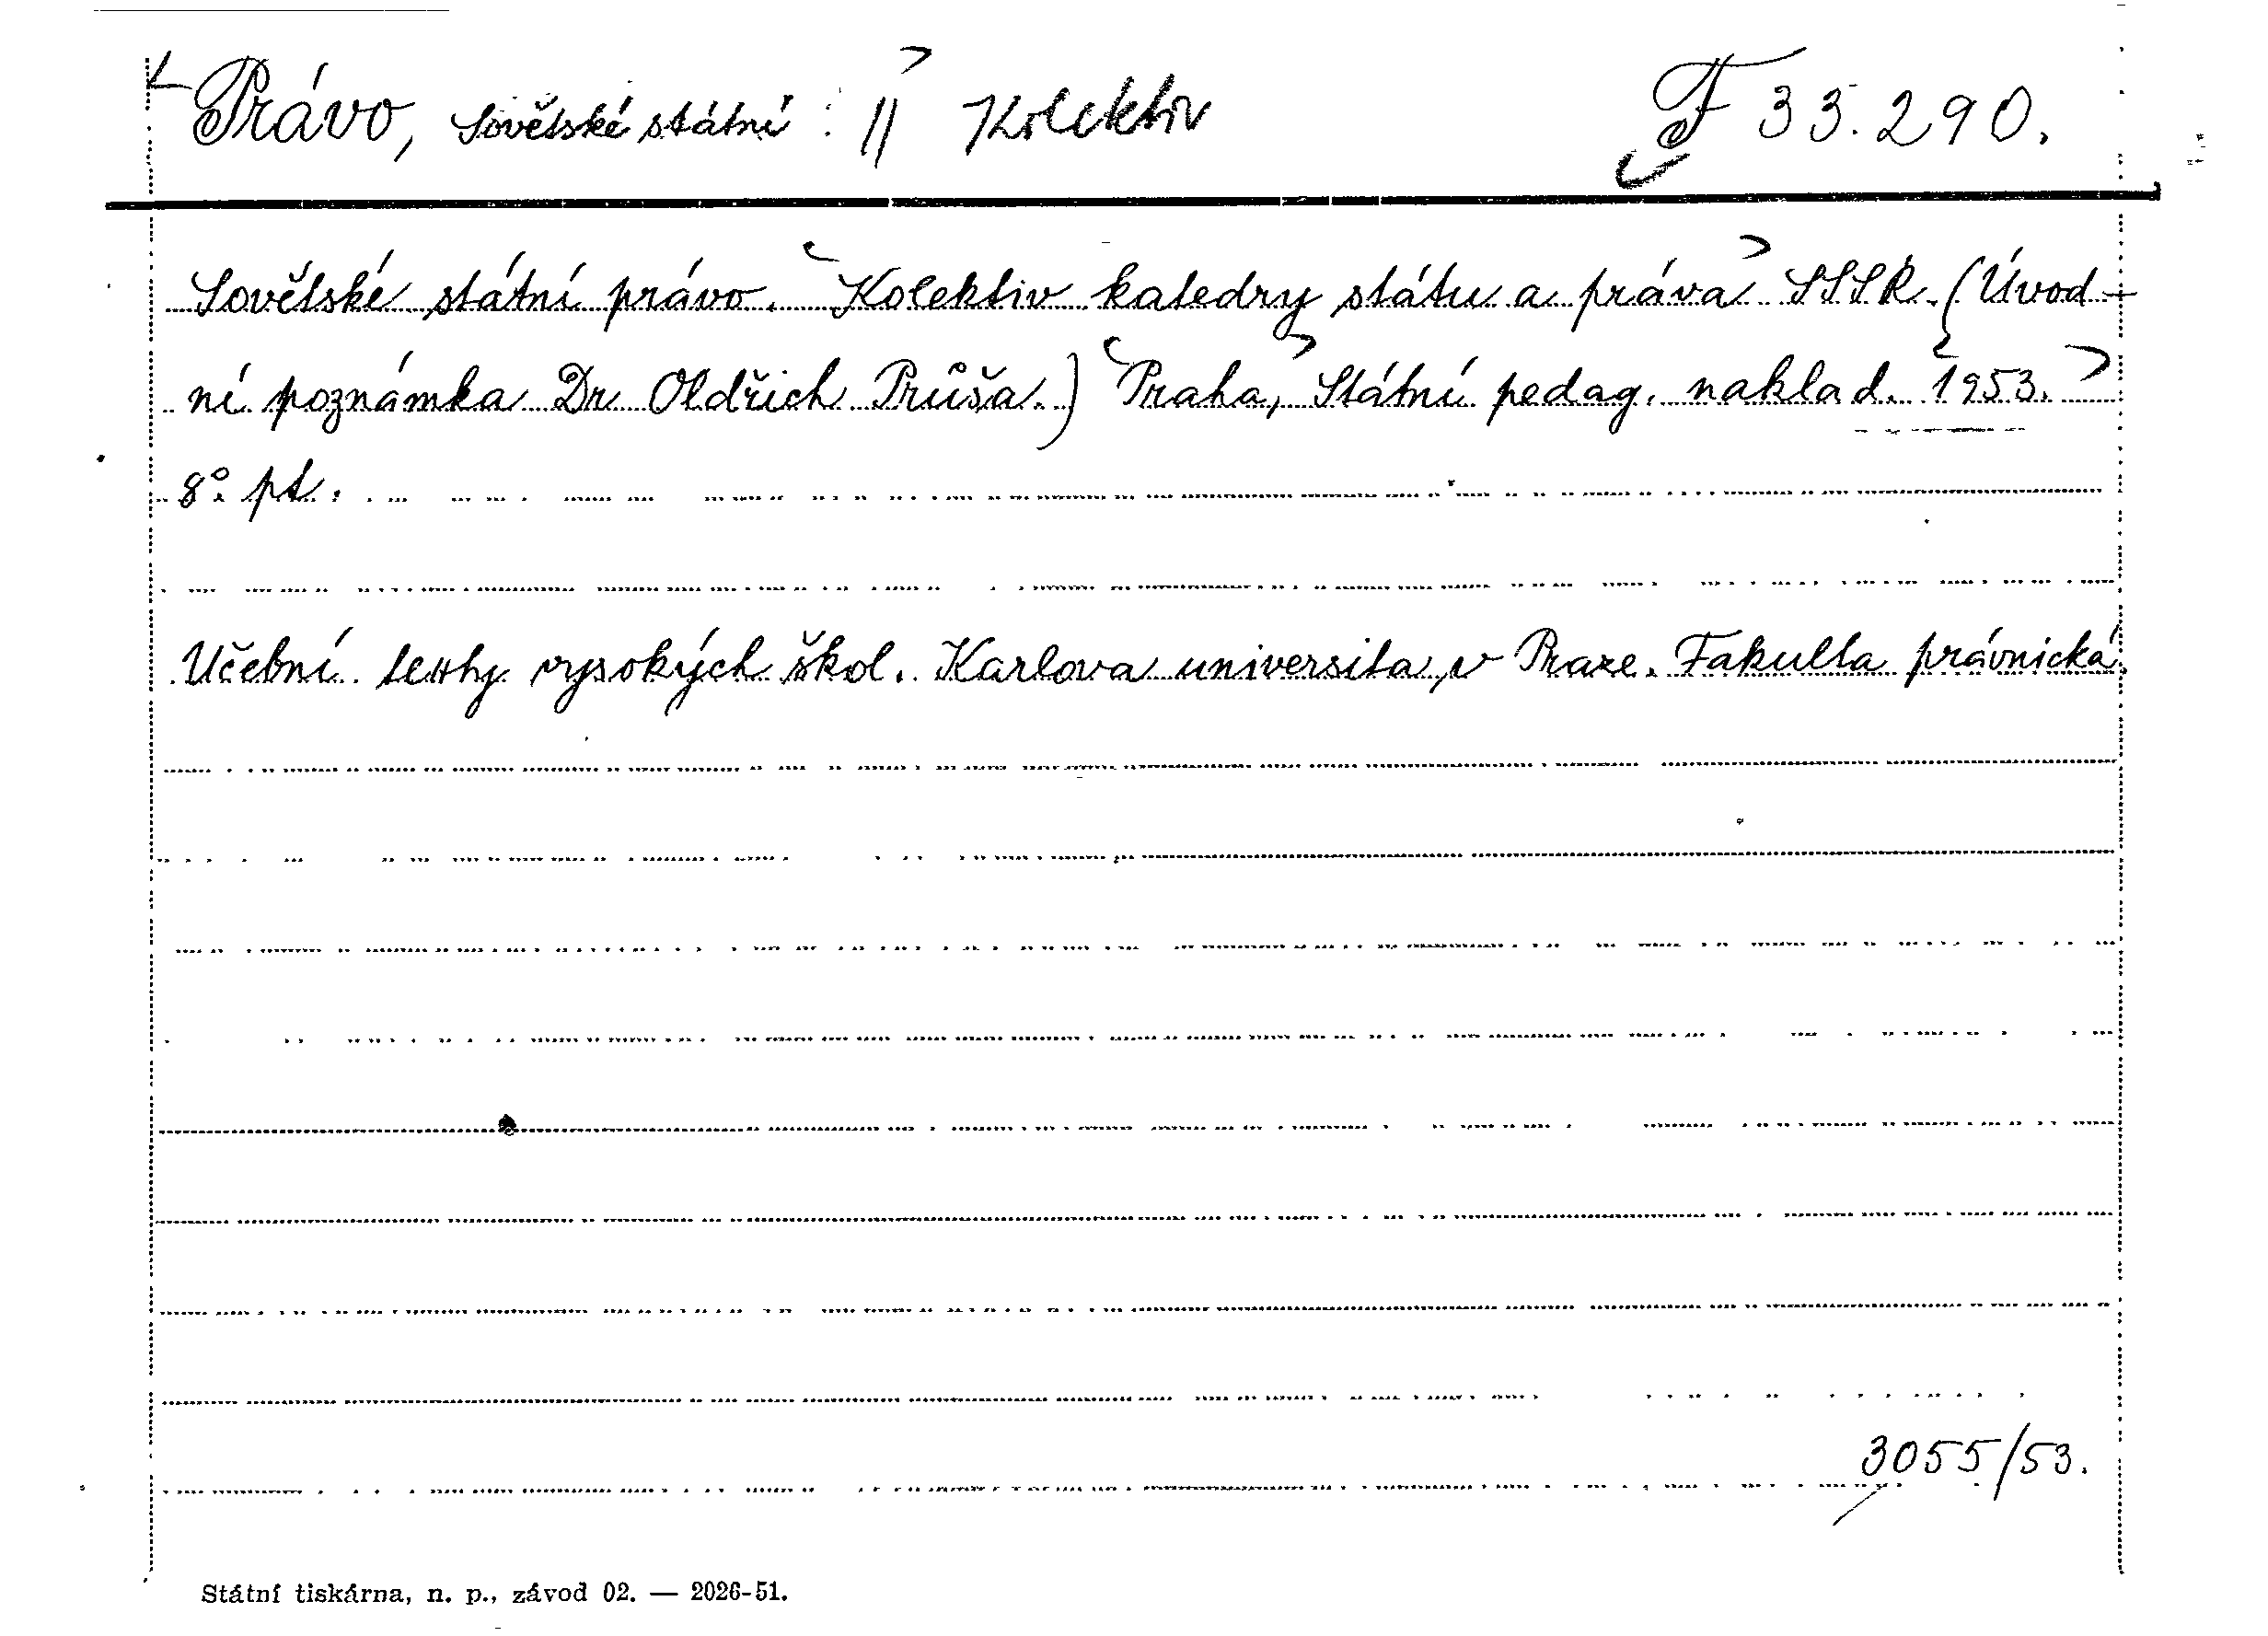 Právo, Sovětské státní : || Kolektiv F 33.290.
Sovětské státní právo. Kolektiv katedry státu a práva SSSR. (Úvod-
ní poznámka Dr Oldřich Průša.) Praha, Státní pedag. naklad. 1953.
8°. pt.
Učební texty vysokých škol. Karlova universita v Praze. Fakulta právnická.
3055/53.
Státní tiskárna, n. p., závod 02. — 2026-51.